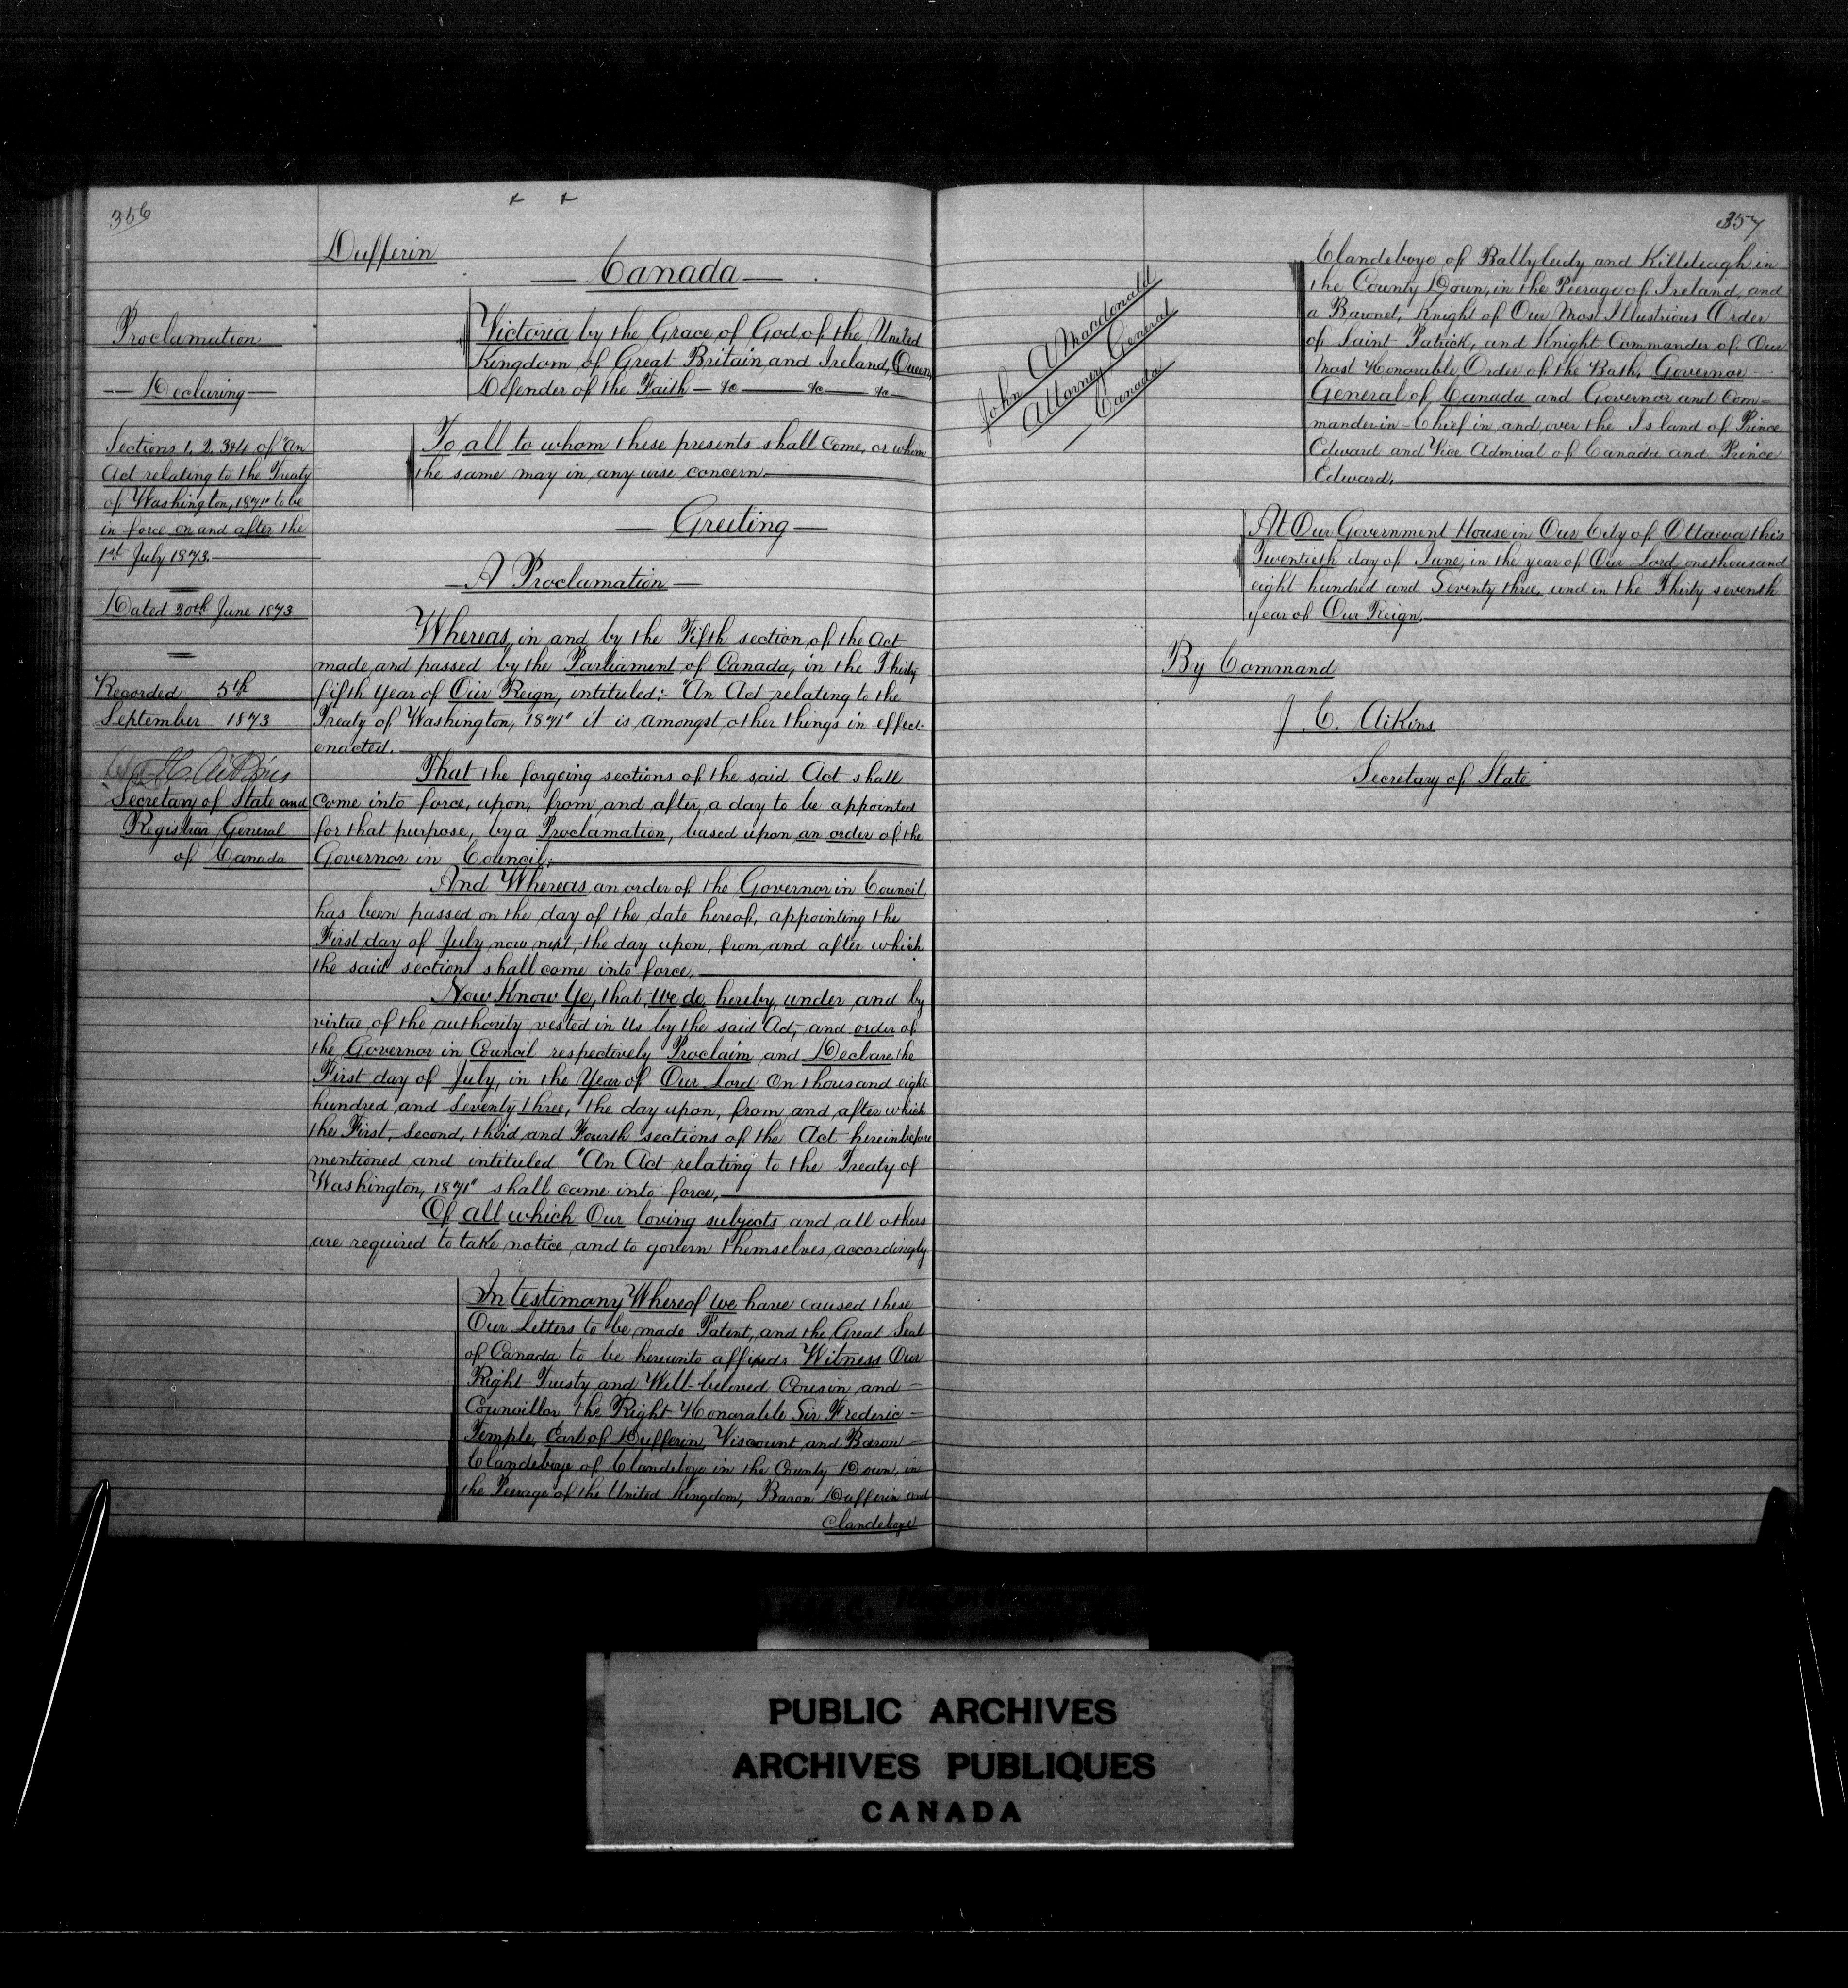 356
Dufferin
Canada
Proclamation
Declaring
Sections 1, 2, 3 & 4 of "An
Act relating to the Treaty
of Washington, 1871" to be
in force on and after the
1st July 1873.
Dated 20th June 1873
Recorded 5th
September 1873
J.C. Aikins
Secretary of State and
Registrar General
of Canada
Victoria by the Grace of God of the United
Kingdom of Great Britain and Ireland, Queen,
Defender of the Faith — &c — &c — &c —
To all to whom these presents shall come, or whom
the same may in any wise concern.
Greeting
A Proclamation
Whereas, in and by the Fifth section of the Act
made and passed by the Parliament of Canada, in the Thirty
fifth year of Our Reign, intituled: "An Act relating to the
Treaty of Washington, 1871" it is amongst other things in effect
enacted.
That the forgoing sections of the said Act shall
come into force, upon, from and after, a day to be appointed
for that purpose, by a Proclamation, based upon an order of the
Governor in Council;
And Whereas an order of the Governor in Council,
has been passed on the day of the date hereof, appointing the
First day of July now next, the day upon, from and after which
the said sections shall come into force.
Now Know Ye, that, We do hereby, under and by
virtue of the authority vested in Us by the said Act, and order of
the Governor in Council respectively Proclaim and Declare the
First day of July, in the Year of Our Lord On thousand eight
hundred and seventy three, the day upon, from and after which
the First, Second, third and Fourth sections of the Act hereinbefore
mentioned and intituled "An Act relating to the Treaty of
Washington, 1871" shall come into force,
Of all which Our loving subjects and all others
are required to take notice and to govern themselves accordingly
In testimony Whereof We have caused these
Our Letters to be made Patent, and the Great Seal
of Canada to be hereunto affixed. Witness Our
Right Trusty and Well-beloved Cousin and
Councillor the Right Honorable Sir Frederic
Temple, Earl of Dufferin, Viscount and Baron
Clandeboye of Clandeboye in the County Down, in
the Peerage of the United Kingdom, Baron Dufferin and
Clandeboye
357
John A Macdonald
Attorney General
Canada
Clandeboye of Ballyleidy and Killeleagh in
the County Down, in the Peerage of Ireland, and
a Baronet, Knight of Our Most Illustrious Order
of Saint Patrick, and Knight Commander of Our
Most Honorable Order of the Bath, Governor
General of Canada and Governor and Com=
mander in Chief in and over the Island of Prince
Edward and Vice Admiral of Canada and Prince
Edward.
At Our Government House in Our City of Ottawa this
Twentieth day of June, in the year of Our Lord one thousand
eight hundred and Seventy three, and in the Thirty seventh
year of Our Reign.
By Command
J. C. Aikins
Secretary of State
PUBLIC ARCHIVES
ARCHIVES PUBLIQUES
CANADA